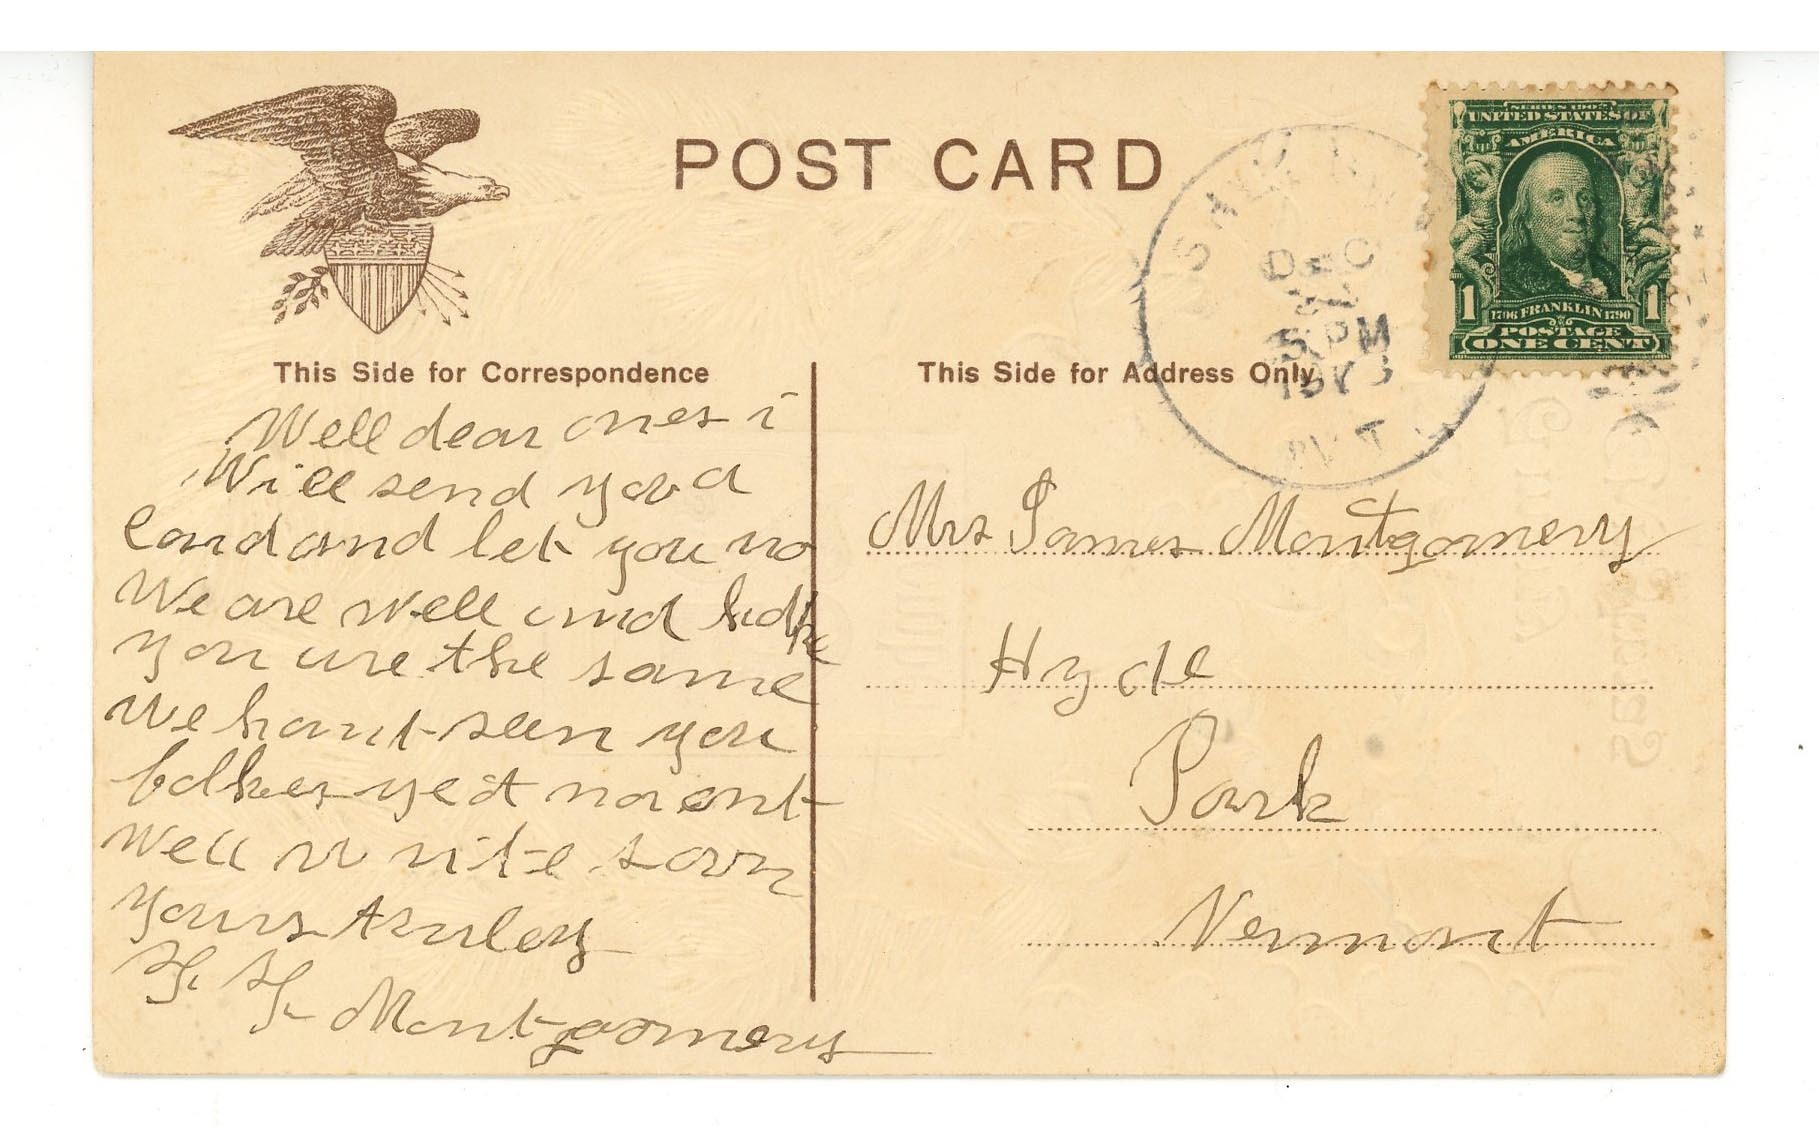 POST CARD
SERIES 1902
UNITED STATES OF
AMERICA
1 1706 FRANKLIN 1790 1
POSTAGE
ONE CENT
DEC
5 PM
VT.
This Side for Correspondence
Well dear ones i
Will send you a
Card and let you no
We are well and hope
you are the same
We hant seen you
folkes yeat
Well write soon
yours truley
Montgomery
This Side for Address Only
Mrs James Montgomery
Hyde
Park
Vermont